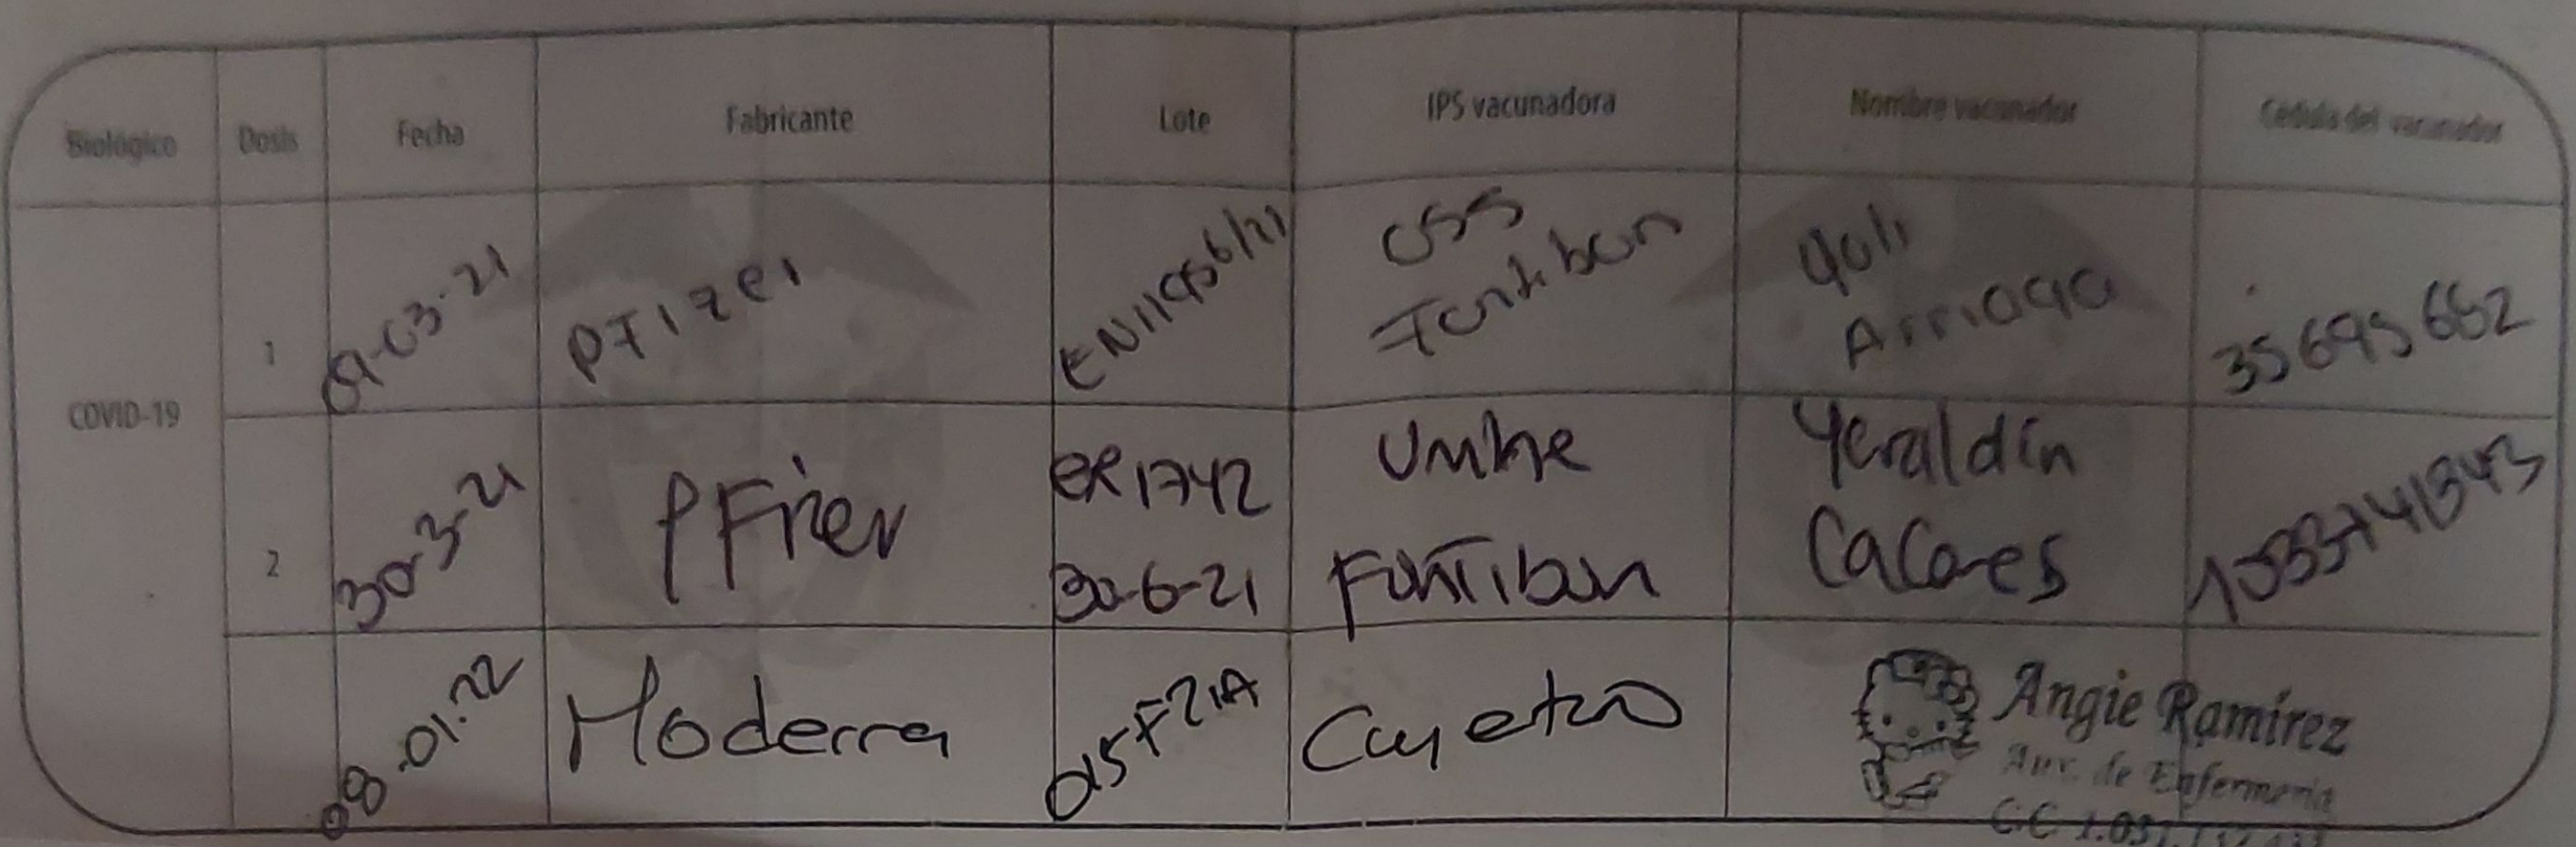 Biológico Dosis Fecha Fabricante Lote IPS vacunadora Nombre vacunador Cédula del vacunador
COVID-19
1 09-03-21 PFizer USS Fontibon Yuli Arriaga 35695662
2 30-3-21 PFizer ER1742 30-6-21 Unibe Fontibon Yeraldin Caceres
08-01-22 Moderna 015F21A Cayetano Angie Ramírez
Aux. de Enfermería